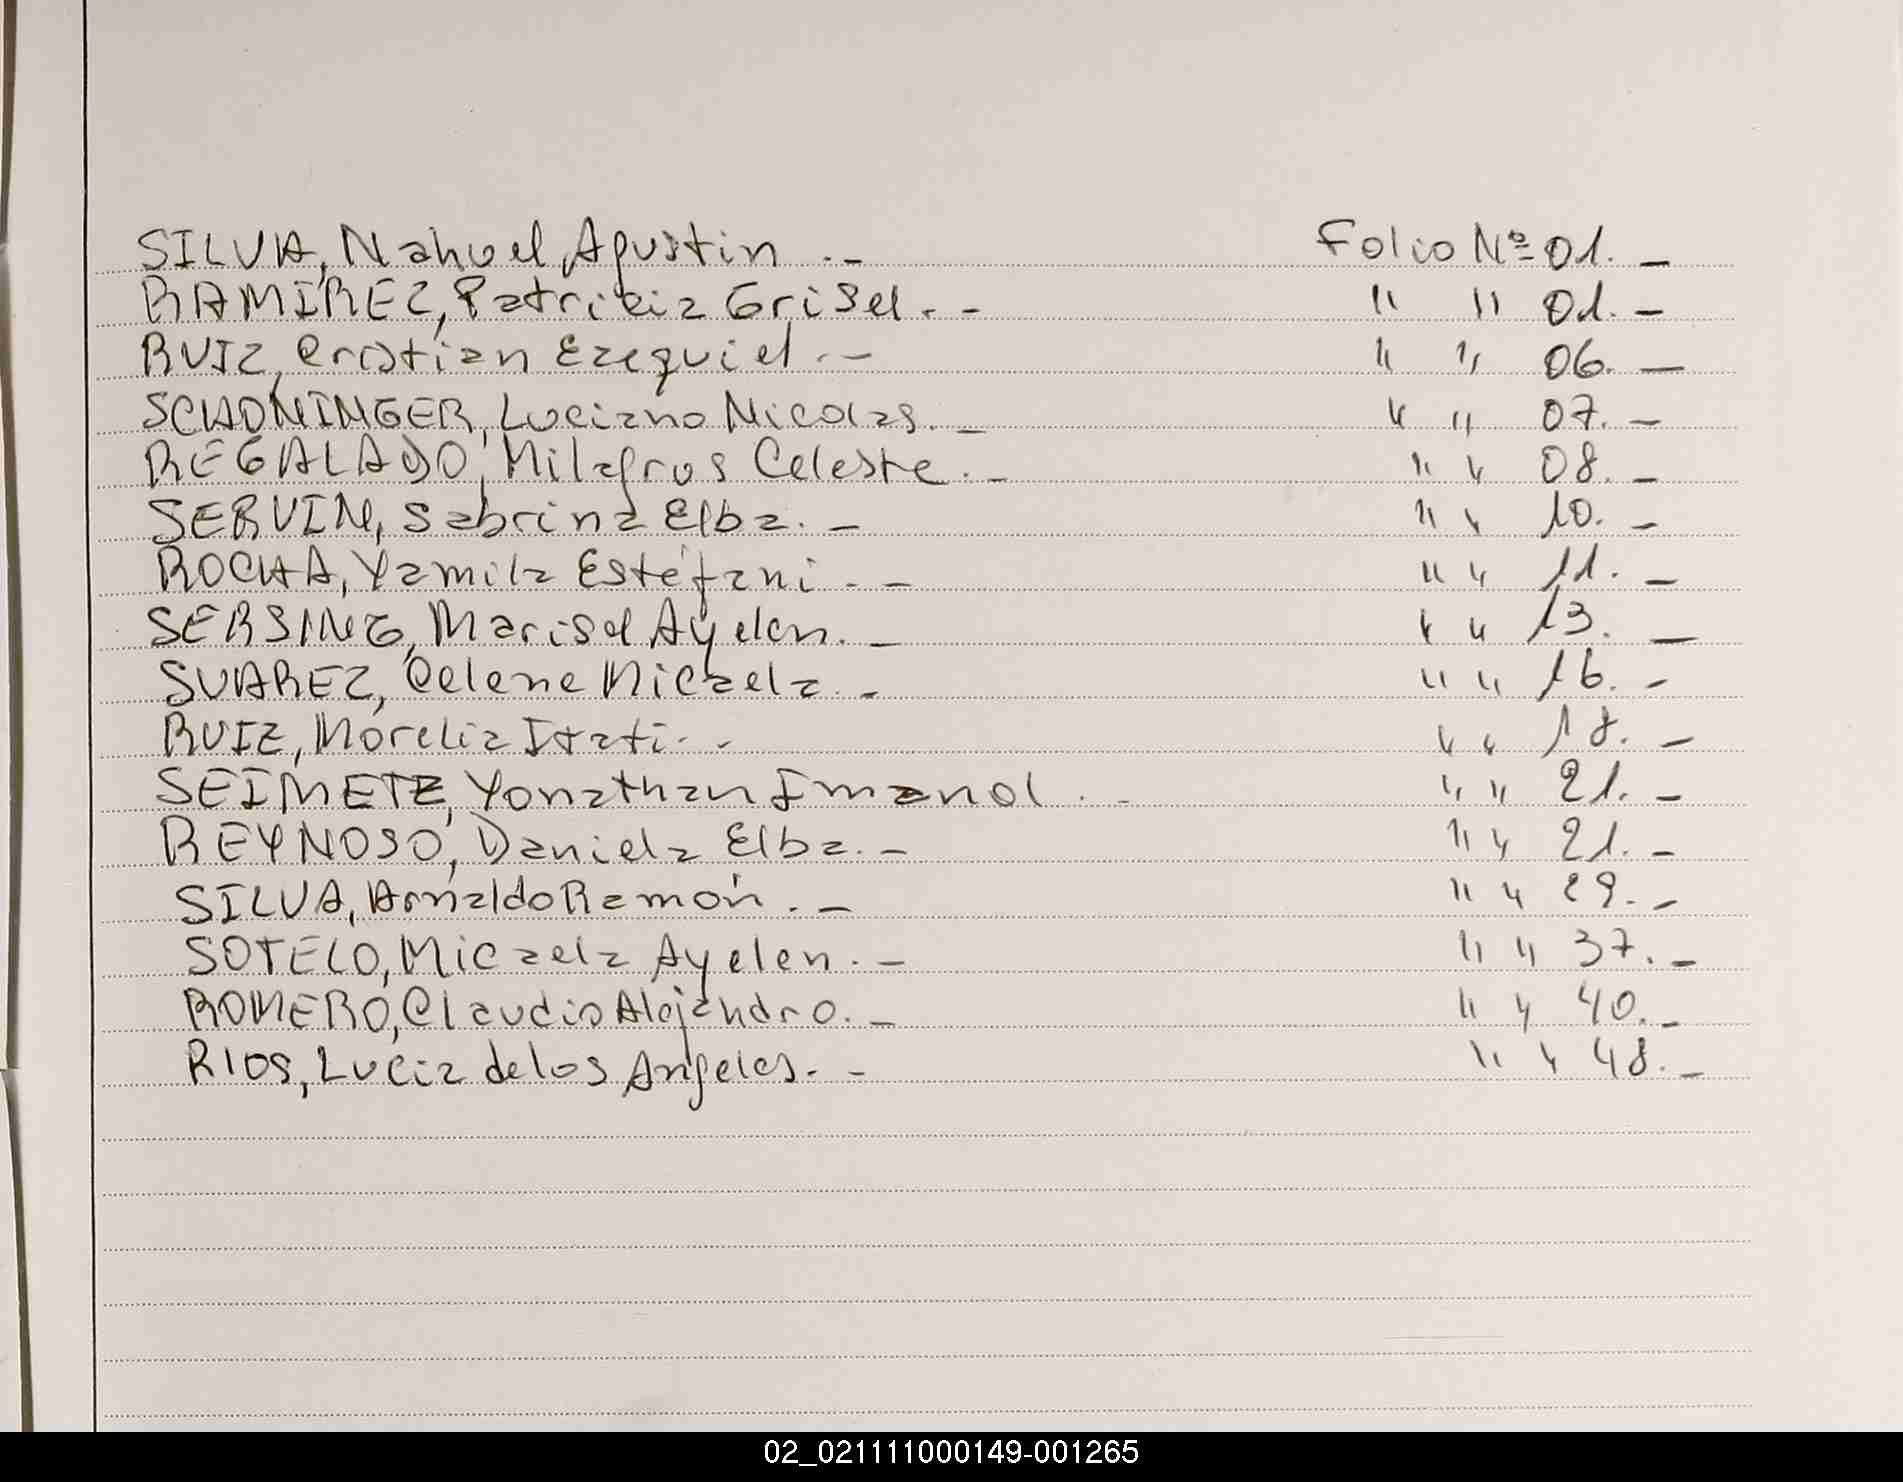 SILVA, Nahuel Agustin .- Folio Nº 01.-
RAMIREZ, Patricia Grisel.- " " 01.-
RUIZ, Cristian Ezequiel.- " " 06.-
SCHONINGER, Luciano Nicolas.- " " 07.-
REGALADO, Milagros Celeste.- " " 08.-
SERVIN, Sabrina Elba.- " " 10.-
ROCHA, Yamila Estefani.- " " 11.-
SERSING, Marisol Ayelen.- " " 13.-
SUAREZ, Celene Micaela.- " " 16.-
RUIZ, Morelia Itati.- " " 18.-
SEIMETZ, Yonathan Imanol.- " " 21.-
REYNOSO, Daniela Elba.- " " 21.-
SILVA, Arnaldo Ramón.- " " 29.-
SOTELO, Micaela Ayelen.- " " 37.-
ROMERO, Claudio Alejandro.- " " 40.-
RIOS, Lucia de los Angeles.- " " 48.-
02_021111000149-001265